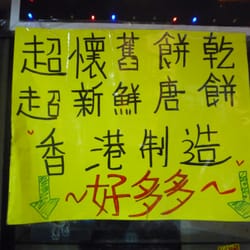 超懷舊餅乾
超新鮮唐餅
香港制造
~好多多~